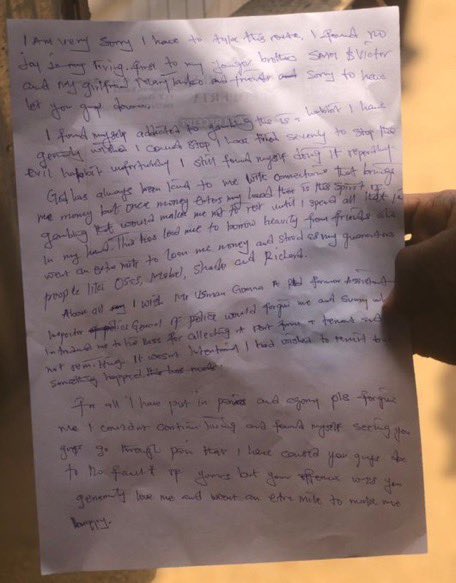 I Am very Sorry I have to take this route, I found no
Joy in my living first to my younger brothers Sam & Victor
and my girlfriend and friends Sorry to have
let you guys down.
I found myself addicted to gambling this is a habit I have
genuinely wished I could stop I have tried severally to stop this
evil habit unfortunately I still found myself doing it repeatedly.
God has always been kind to me with connections that brings
me money but once money enters my hand there is this spirit of
gambling that would makes me not to rest until I spend all left
in my hand. This has lead me to borrow heavily from friends who
went an extra mile to loan me money and stood as my guarantors
people like Oses, and Richard.
Above all I wish Mr Usman Gomna A former Assistant
Inspector General of police would forgive me and Sunny who
me to the Boss for collecting rent from a tenant and
not remitting. It wasn't intentional I had wished to remit but
something happened.
In all I have put in pains and agony pls forgive
me I couldn't continue living and found myself seeing you
guys go through pain that I have caused you guys due
to no fault of yours but your offence was you
genuinely love me and went an extra mile to make me
happy.